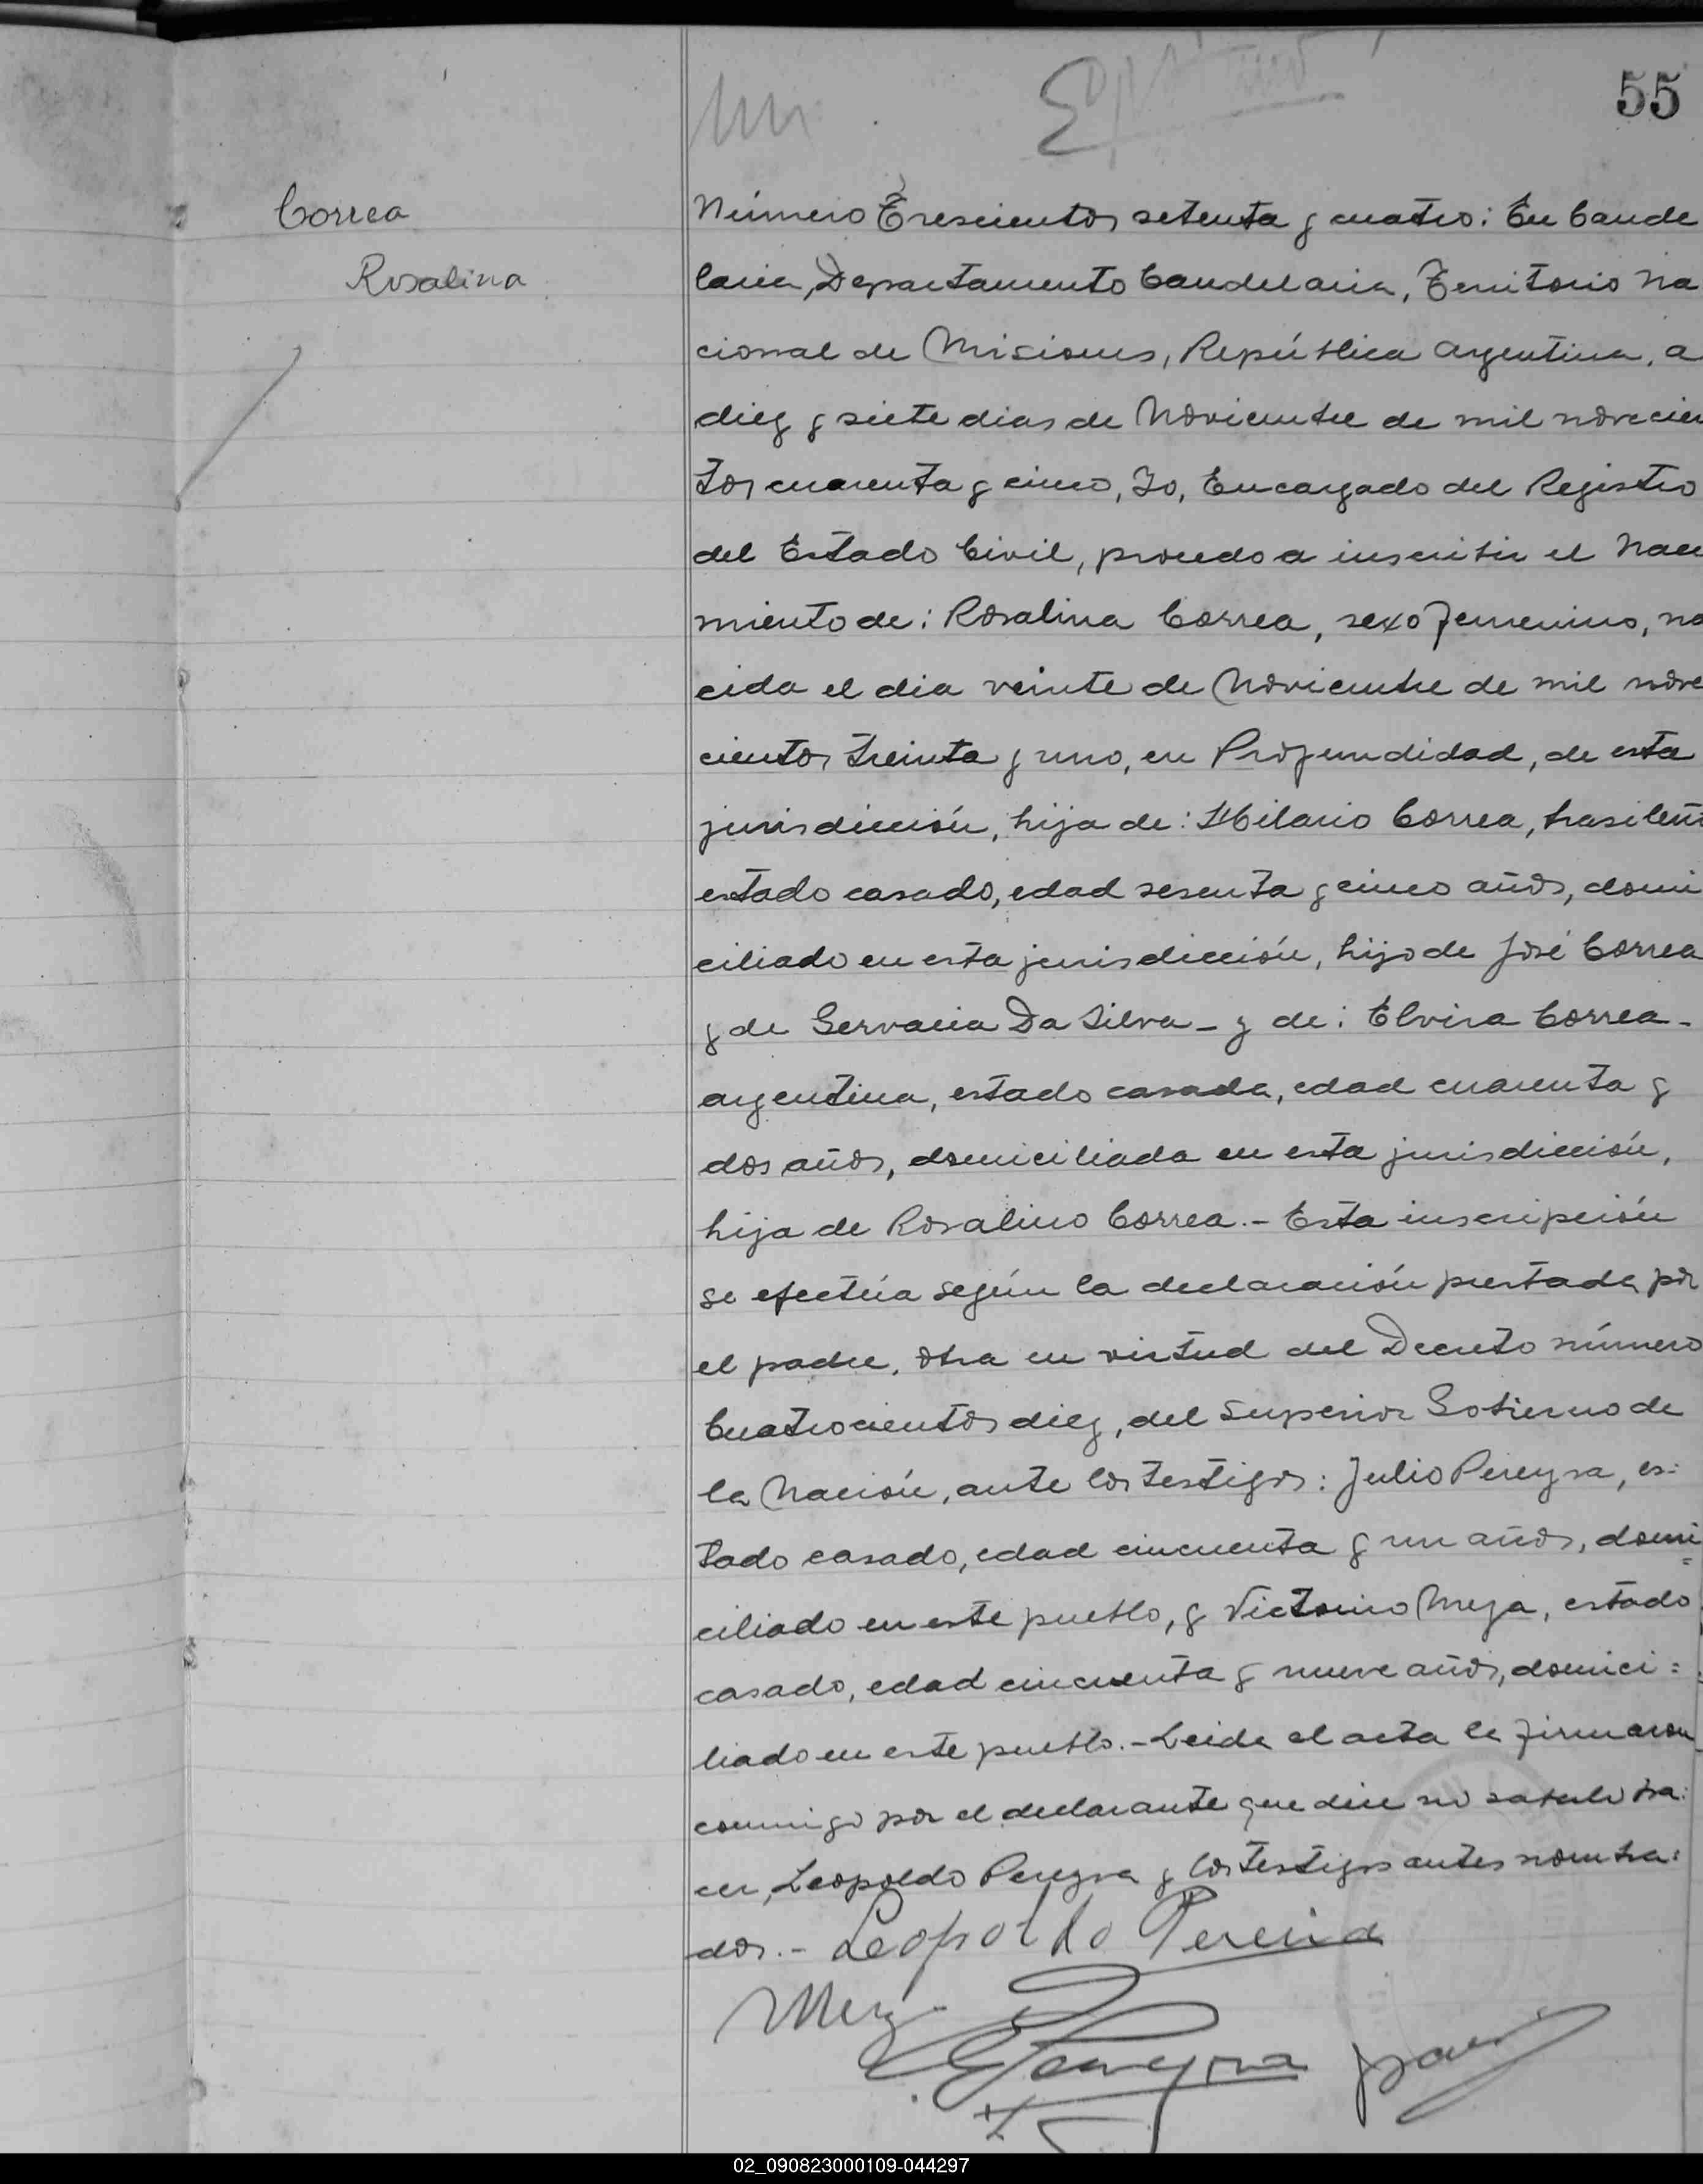 55
Correa
Rosalina
Número Trescientos setenta y cuatro: En Cande
laria, Departamento Candelaria, Territorio Na
cional de Misiones, República Argentina, a
diez y siete dias de Noviembre de mil novecien
tos cuarenta y cinco, Yo, Encargado del Registro
del Estado Civil, procedo a inscribir el Naci
miento de: Rosalina Correa, sexo femenino, na
cida el dia veinte de Noviembre de mil nove
cientos treinta y uno, en Profundidad, de esta
jurisdicción, hija de: Hilario Correa, brasileño
estado casado, edad sesenta y cinco años, domi
ciliado en esta jurisdicción, hijo de José Correa
y de Gervacia Da Silva - y de: Elvira Correa -
argentina, estado casada, edad cuarenta y
dos años, domiciliada en esta jurisdicción,
hija de Rosalino Correa. - Esta inscripción
se efectúa según la declaración prestada por
el padre, obra en virtud del Decreto número
Cuatrocientos diez, del Superior Gobierno de
la Nación, ante los testigos: Julio Pereyra, es=
tado casado, edad cincuenta y un años, domi=
ciliado en este pueblo, y Victorino Meza, estado
casado, edad cincuenta y nueve años, domici=
liado en este pueblo. - Leida el acta la firmaron
conmigo por el declarante que dice no saberlo ha=
cer, Leopoldo Pereyra y los testigos antes nombra=
dos. - Leopoldo Pereira
Meza
Pereyra
02_090823000109-044297